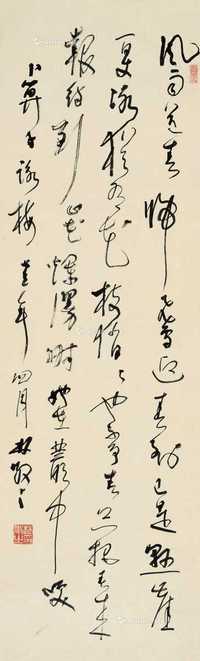 風雨送春歸飛雪迎春到已是懸崖
百丈冰猶有花枝俏〻也不爭春只把春來
報待到山花爛漫時她在叢中笑
卜算子詠梅 年四月 林散之